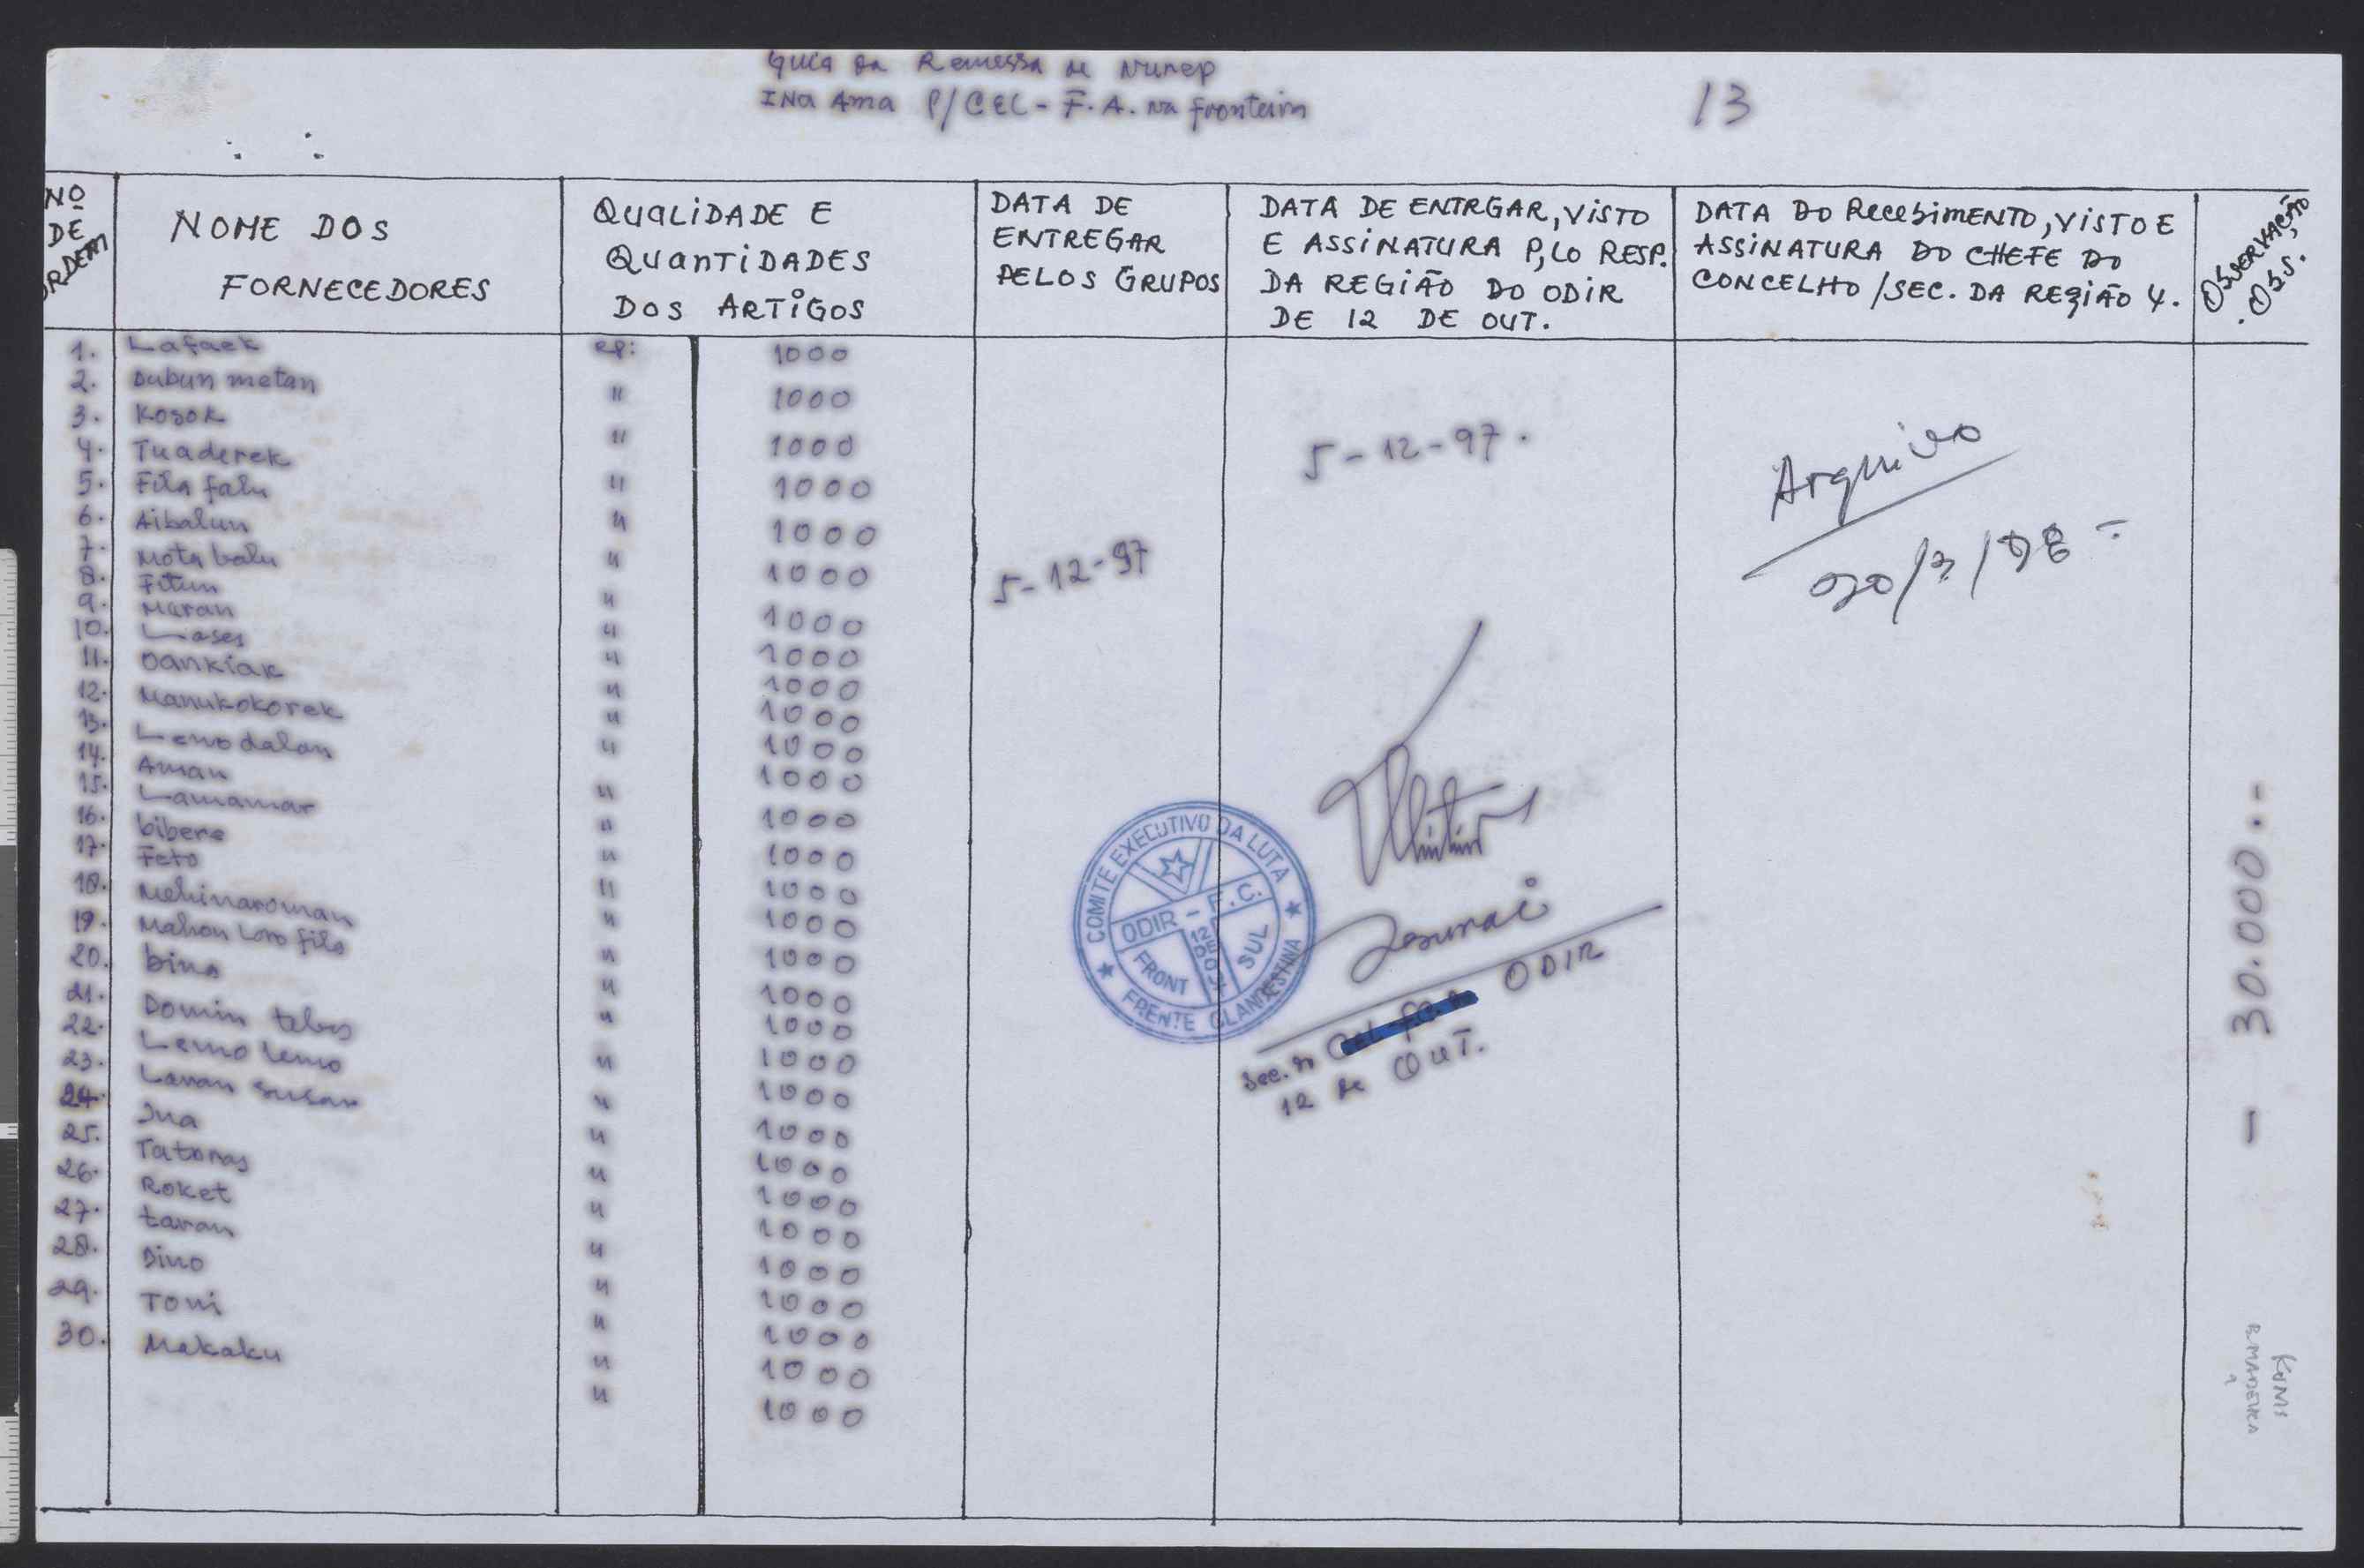 Guia da Remessa de Nurep
INa Ama P/CEL - F.A. na fronteira
13
Nº DE ORDEM
NOME DOS
FORNECEDORES
QUALIDADE E
QUANTIDADES
DOS ARTIGOS
DATA DE
ENTREGAR
PELOS GRUPOS
DATA DE ENTRGAR, VISTO
E ASSINATURA P,LO RESP.
DA REGIÃO DO ODIR
DE 12 DE OUT.
DATA DO RecebiMENTO, VISTO E
ASSINATURA DO CHEFE DO
CONCELHO /SEC. DA REGIÃO 4.
OBSERVAÇÃO
.OBS.
1. Lafaek RP: 1000
2. Bubun metan " 1000
3. Kosok " 1000
4. Tuaderek " 1000
5. Fila falu " 1000
6. Aibalun " 1000
7. Mota balu " 1000
8. Fitun " 1000
9. Maran " 1000
10. Lases " 1000
11. Dankiak " 1000
12. Manukokorek " 1000
13. Leno dalan " 1000
14. Aman " 1000
15. Lamamar " 1000
16. bibere " 1000
17. Feto " 1000
18. Mehinaroman " 1000
19. Mahon Loro fila " 1000
20. bina " 1000
21. Domin tebes " 1000
22. Lemo lemo " 1000
23. Lanan susar " 1000
24. Ina " 1000
25. Tatoras " 1000
26. Roket " 1000
27. taran " 1000
28. Dino " 1000
29. Toni " 1000
30. Makaku " 1000
5-12-97
5-12-97.
COMITÉ EXECUTIVO DA LUTA
FRENTE CLANDESTINA
ODIR - F.C.
FRONT SUL
Sec. ODIR
12 de OUT.
Arquivo
20/3/98
- 30.000..-
KOMS